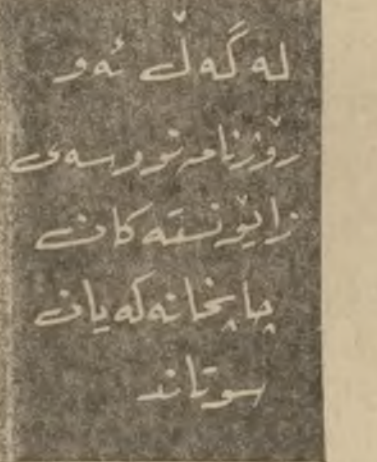 لەگەڵ ئەو
رۆژنامەنووسەی
زایۆنستەکان
چاپخانەکەیان
سوتاند